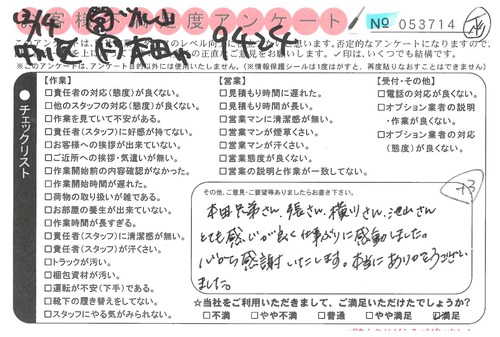 お客様満足度アンケート
№ 053714
9424
※このアンケートは、アンケート目的以外には使用いたしません。（※情報保護シールは1度はがすと、再度貼りなおすことはできません）
チェックリスト
【作業】
□責任者の対応(態度)が良くない。
□他のスタッフの対応(態度)が良くない。
□作業を見ていて不安がある。
□責任者(スタッフ)に好感が持てない。
□お客様への挨拶が出来ていない。
□ご近所への挨拶・気遣いが無い。
□作業開始前の内容確認がなかった。
□作業開始時間が遅れた。
□荷物の取り扱いが雑である。
□お部屋の養生が出来ていない。
□作業時間が長すぎる。
□責任者(スタッフ)に清潔感が無い。
□責任者(スタッフ)が汗くさい。
□トラックが汚い。
□梱包資材が汚い。
□運転が不安(下手)である。
□靴下の履き替えをしてない。
□スタッフにやる気がみられない。
【営業】
□見積もり時間に遅れた。
□見積もり時間が長い。
□営業マンに清潔感が無い。
□営業マンが煙草くさい。
□営業マンが汗くさい。
□営業態度が良くない。
□営業の説明と作業が一致してない。
【受付・その他】
□電話の対応が良くない。
□オプション業者の説明
・作業が良くない。
□オプション業者の対応
(態度)が良くない。
その他、ご意見・ご要望等ありましたらお書き下さい。
本田兄弟さん、張さん、横川さん、池山さん
とても感じが良く仕事ぶりに感動しました。
心から感謝いたします。本当にありがとうござい
ました。
☆当社をご利用いただきまして、ご満足いただけたでしょうか?
□不満 □やや不満 □普通 □やや満足 ☑満足